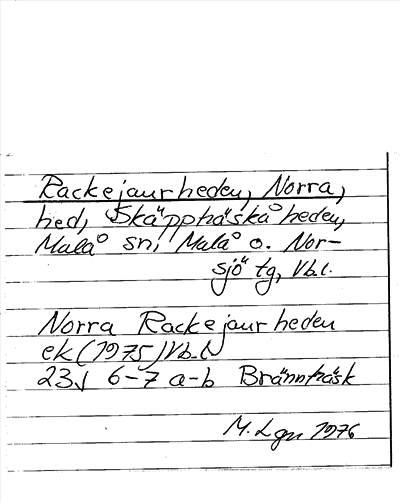 Rackejaurheden, Norra,
hed, Skäppträskåheden,
Malå sn, Malå o. Nor-
sjö tg, Vb.l.
Norra Rackejaurheden
ek (1975) Vb.l
23J 6-7 a-b Brännträsk
M. Lgn 1976